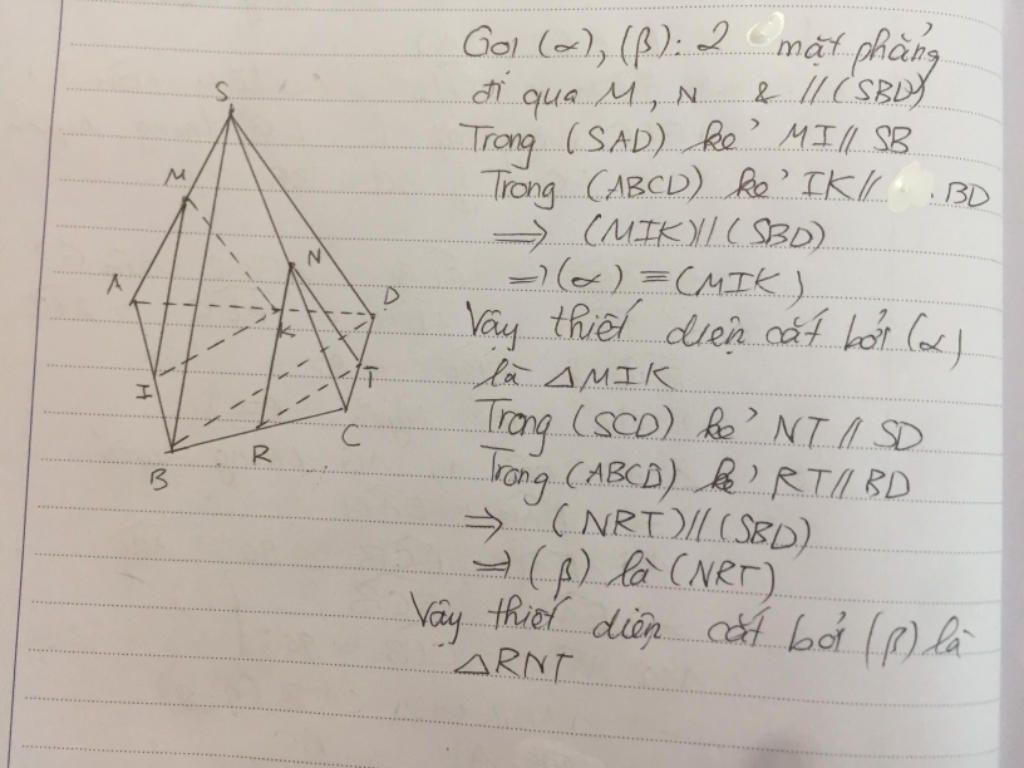 S
M
N
A
D
K
I
T
B
R
C
Gọi (α), (β): 2 mặt phẳng
đi qua M, N & // (SBD)
Trong (SAD) kẻ MI // SB
Trong (ABCD) kẻ IK // BD
⇒ (MIK) // (SBD)
⇒ (α) ≡ (MIK)
Vậy thiết diện cắt bởi (α)
là △MIK
Trong (SCD) kẻ NT // SD
Trong (ABCD) kẻ RT // BD
⇒ (NRT) // (SBD)
⇒ (β) là (NRT)
Vậy thiết diện cắt bởi (β) là
△RNT